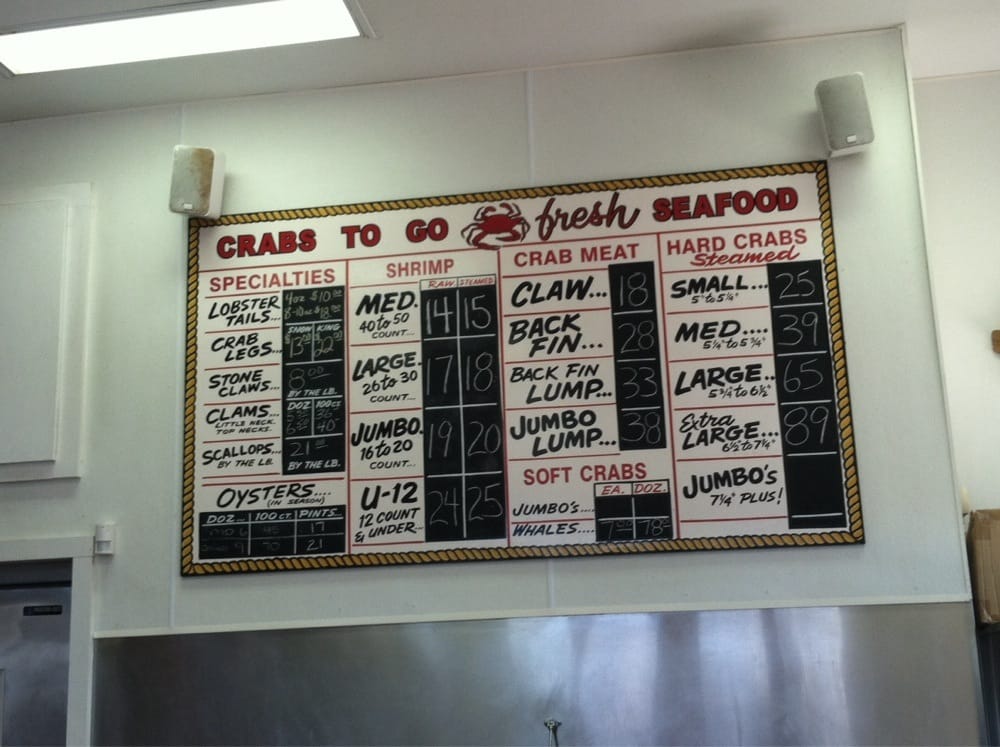 CRABS TO GO fresh SEAFOOD
SPECIALTIES
LOBSTER TAILS... 4oz $10.00
8-10oz $18.00
SNOW KING
CRAB LEGS... 13 22
STONE CLAWS... 8.00
BY THE LB.
DOZ 100CT
CLAMS...
LITTLE NECK.
TOP NECKS. 40
SCALLOPS... 21
BY THE LB. BY THE LB.
OYSTERS....
(IN SEASON)
DOZ... 100 CT. PINTS...
17
70 21
SHRIMP
RAW. STEAMED
MED. 14 15
40 to 50
COUNT...
LARGE. 17 18
26 to 30
COUNT...
JUMBO. 19 20
16 to 20
COUNT...
U-12 24 25
12 COUNT
& UNDER...
CRAB MEAT
CLAW... 18
BACK FIN... 28
BACK FIN
LUMP... 33
JUMBO
LUMP... 38
SOFT CRABS
EA. DOZ.
JUMBO'S....
WHALES.... 7.00 78
HARD CRABS
Steamed
SMALL... 25
5" to 5¼"
MED.... 39
5¼" to 5¾"
LARGE... 65
5¾" to 6½"
Extra
LARGE... 89
6½" to 7¼"
JUMBO'S
7¼" PLUS!